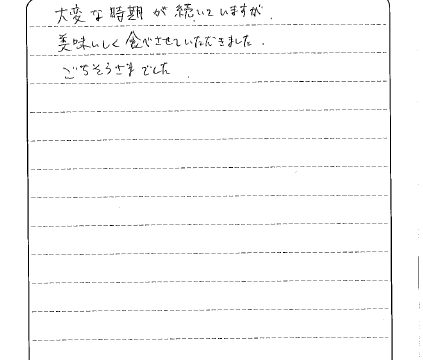 大変な時期が続いていますが.
美味しく食べさせていただきました.
ごちそうさまでした.